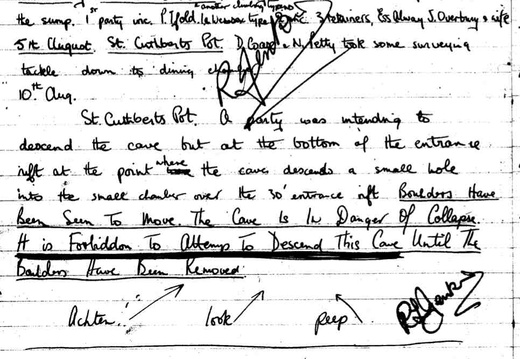 another climbing type
the sump. 1st party inc. P. Ifold. 3 trainers, Es Alway J. Overbury & wife
5th August. St. Cuthberts Pot. D. Coase & N. Petty took some surveying
tackle down to dining
10th Aug.
St. Cuthberts Pot. A party was intending to
descend the cave but at the bottom of the entrance
rift at the point where the cave descends a small hole
into the small chamber over the 30' entrance rift Boulders Have
Been Seen To Move. The Cave Is In Danger Of Collapse.
It is Forbiddon To Attemp To Descend This Cave Until The
Boulders Have Been Removed.
Achten..! look peep